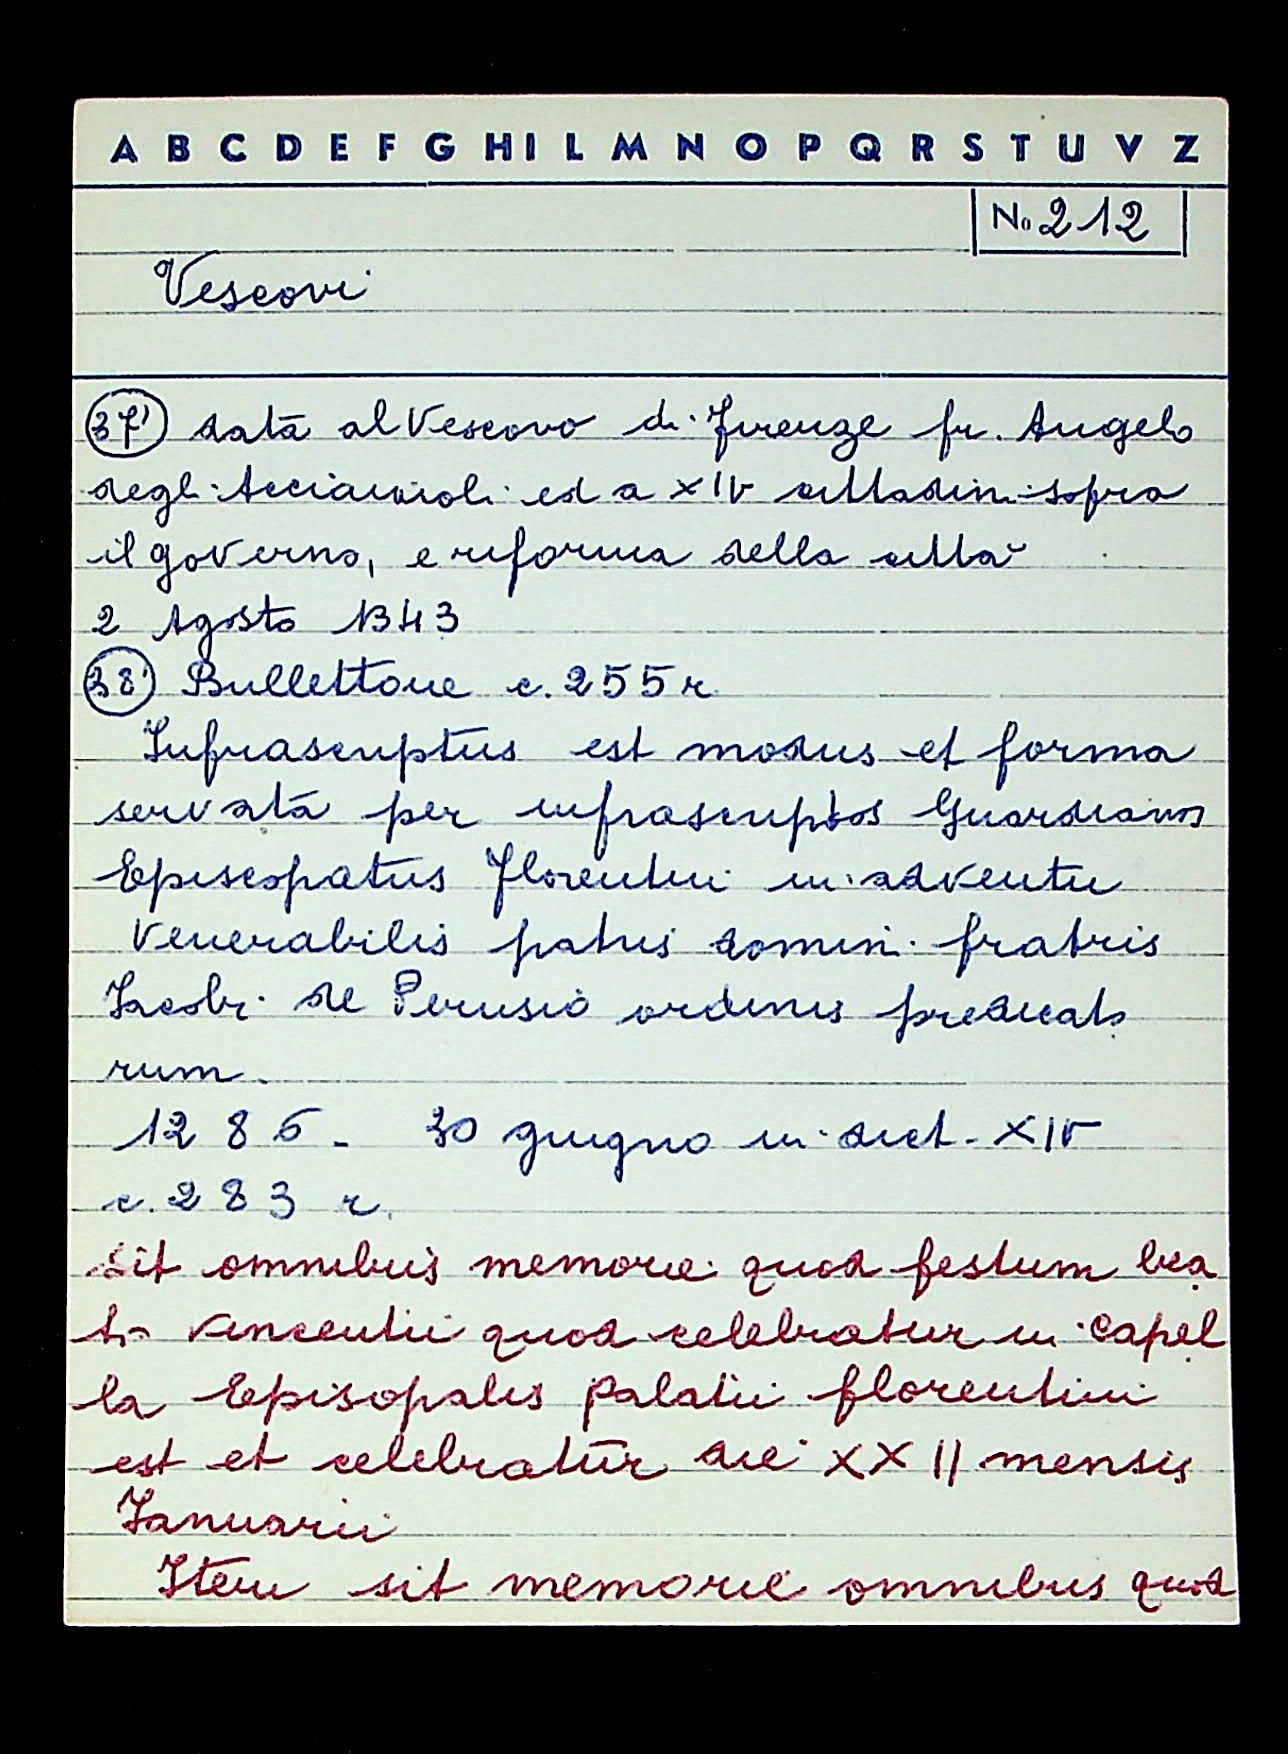 A B C D E F G H I L M N O P Q R S T U V Z
No 212
Vescovi
37) data al Vescovo di Firenze fr. Angelo
degli Acciaiuoli ed a XIV cittadini sopra
il governo, e riforma della città
2 Agosto 1343
38) Bullettone c. 255 r
Infrascriptus est modus et forma
servata per infrascriptos Guardianos
Episcopatus Florentini in adventu
Venerabilis patris domini fratris
Iacobi de Perusio ordinis predicato
rum.
1286 - 30 giugno in dict. XIV
c. 283 r.
Sit omnibus memorie quod festum bea
ti Vincentii quod celebratur in Capel
la Episopalis Palatii florentini
est et celebratur die XXII mensis
Ianuarii
Item sit memorie omnibus quod